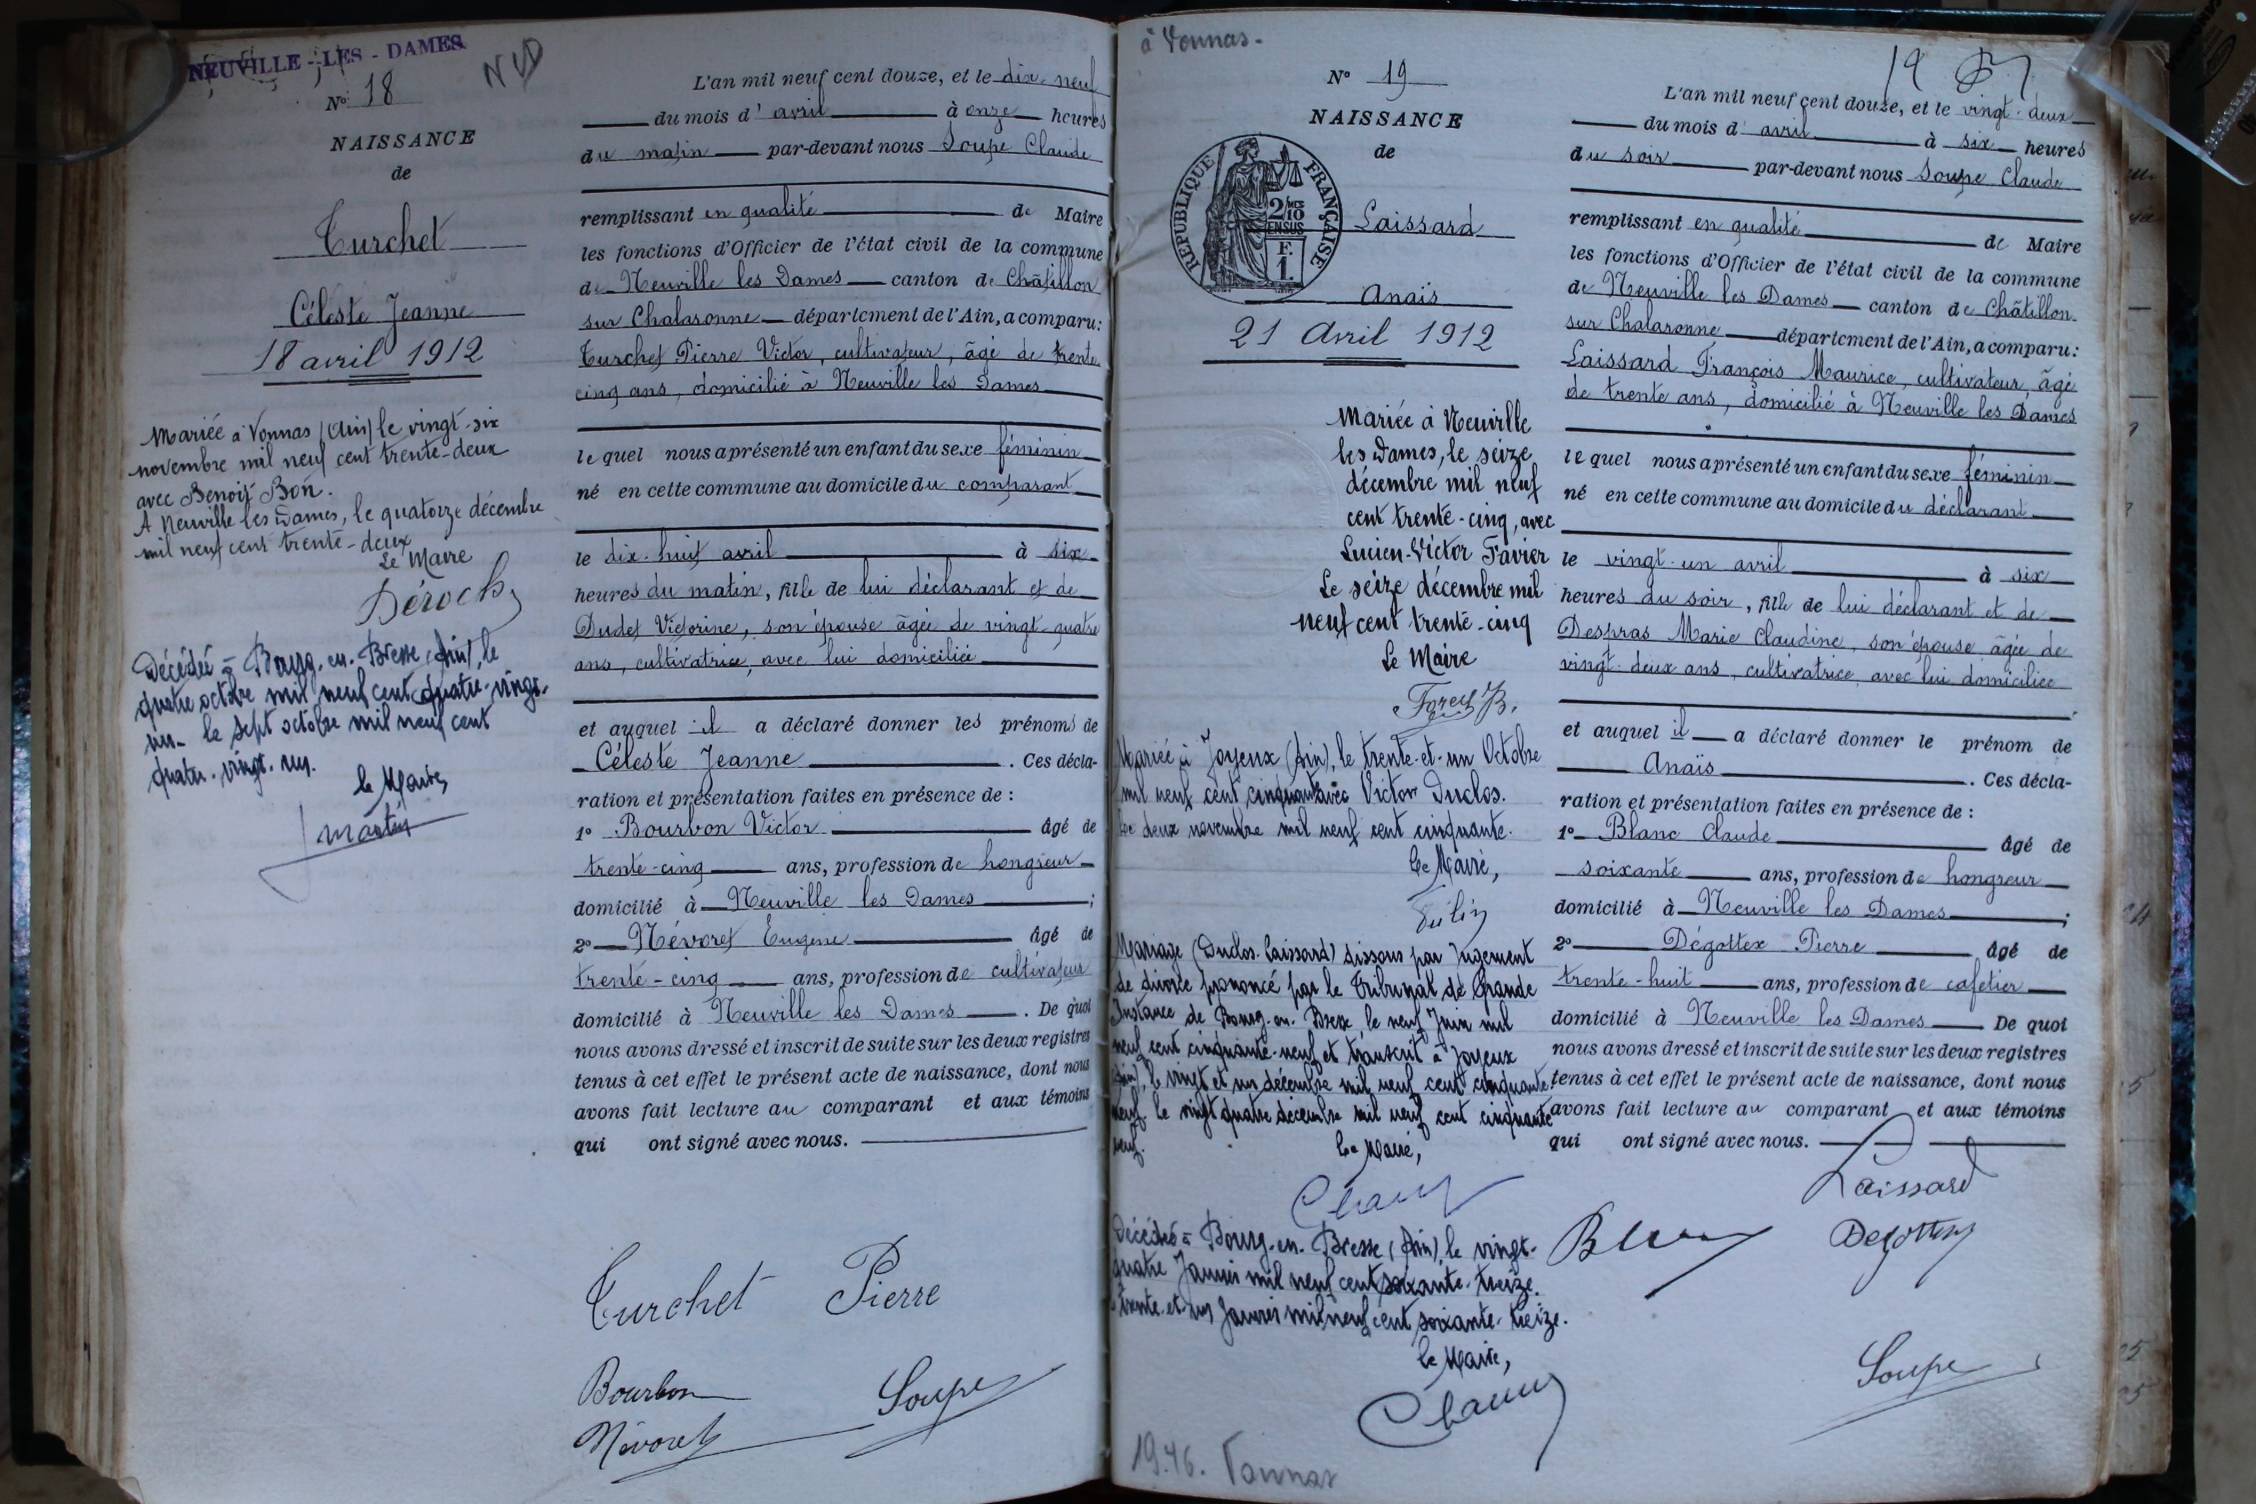 NEUVILLE - LES - DAMES
N° 18
NAISSANCE
de
Turchet
Céleste Jeanne
18 avril 1912
Mariée à Vonnas (Ain) le vingt-six
novembre mil neuf cent trente-deux
avec Benoît Bon.
A Neuville les Dames, le quatorze décembre
mil neuf cent trente-deux
Le Maire
Décédée à Bourg-en-Bresse (Ain), le
quatre octobre mil neuf cent quatre-vingt-
un_ le sept octobre mil neuf cent
quatre-vingt-un.
le Maire,
L'an mil neuf cent douze, et le dix-neuf
du mois d'avril à onze heures
du matin par-devant nous Soupe Claude
remplissant en qualité de Maire
les fonctions d'Officier de l'état civil de la commune
de Neuville les Dames canton de Châtillon
sur Chalaronne département de l'Ain, a comparu:
Turchet Pierre Victor, cultivateur, âgé de trente
cinq ans, domicilié à Neuville les Dames
lequel nous a présenté un enfant du sexe féminin
né en cette commune au domicile du comparant
le dix-huit avril à six
heures du matin, fille de lui déclarant et de
Dudet Victorine, son épouse âgée de vingt-quatre
ans, cultivatrice, avec lui domiciliée
et auquel il a déclaré donner les prénoms de
Céleste Jeanne. Ces décla-
ration et présentation faites en présence de :
1° Bourbon Victor âgé de
trente-cinq ans, profession de hongreur
domicilié à Neuville les Dames ;
2° Névoret Eugène âgé de
trente-cinq ans, profession de cultivateur
domicilié à Neuville les Dames. De quoi
nous avons dressé et inscrit de suite sur les deux registres
tenus à cet effet le présent acte de naissance, dont nous
avons fait lecture au comparant et aux témoins
qui ont signé avec nous.
Turchet Pierre
Bourbon
Soupe
Névoret
à Vonnas-
N° 19
NAISSANCE
de
REPUBLIQUE FRANÇAISE
2/10
EN SUS
F.
1.
Laissard
Anaïs
21 Avril 1912
Mariée à Neuville
les Dames, le seize
décembre mil neuf
cent trente-cinq, avec
Lucien-Victor Favier
Le seize décembre mil
neuf cent trente-cinq
Le Maire
Mariée à Joyeux (Ain), le trente-et-un Octobre
mil neuf cent cinquante avec Victor Duclos.
Le deux novembre mil neuf cent cinquante.
le Maire,
Mariage (Duclos-Laissard) dissous par Jugement
de divorce prononcé par le Tribunal de Grande
Instance de Bourg-en-Bresse le neuf Juin mil
neuf cent cinquante-neuf et transcrit à Joyeux
(Ain), le vingt et un décembre mil neuf cent cinquante
neuf. le vingt quatre décembre mil neuf cent cinquante
neuf.
le Maire,
Décédée à Bourg-en-Bresse (Ain), le vingt-
quatre Janvier mil neuf cent soixante-treize.
trente-et-un Janvier mil neuf cent soixante-treize.
le Maire,
19.46. Vonnas
19
L'an mil neuf cent douze, et le vingt-deux
du mois d'avril à six heures
du soir par-devant nous Soupe Claude
remplissant en qualité de Maire
les fonctions d'Officier de l'état civil de la commune
de Neuville les Dames canton de Châtillon
sur Chalaronne département de l'Ain, a comparu:
Laissard François Maurice, cultivateur, âgé
de trente ans, domicilié à Neuville les Dames
lequel nous a présenté un enfant du sexe féminin
né en cette commune au domicile du déclarant
le vingt-un avril à six
heures du soir, fille de lui déclarant et de
Despras Marie Claudine, son épouse âgée de
vingt-deux ans, cultivatrice avec lui domiciliée
et auquel il a déclaré donner le prénom de
Anaïs. Ces décla-
ration et présentation faites en présence de :
1° Blanc Claude âgé de
soixante ans, profession de hongreur
domicilié à Neuville les Dames ;
2° Dégottex Pierre âgé de
trente-huit ans, profession de cafetier
domicilié à Neuville les Dames De quoi
nous avons dressé et inscrit de suite sur les deux registres
tenus à cet effet le présent acte de naissance, dont nous
avons fait lecture au comparant et aux témoins
qui ont signé avec nous.
Laissard
Degottex
Soupe